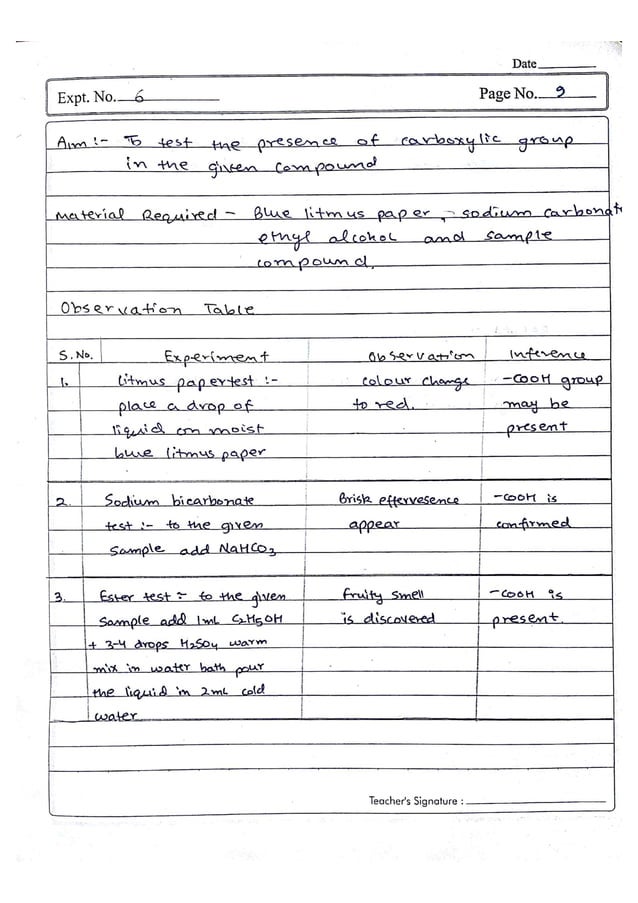 Date
Expt. No. 6
Page No. 9
Aim :- To test the presence of carboxylic group
in the given compound
Material Required - Blue litmus paper, sodium carbonate
ethyl alcohol and sample
compound.
Observation Table
S.No. Experiment Observation Inference
1. Litmus paper test :- colour change -COOH group
place a drop of to red. may be
liquid on moist present
blue litmus paper
2. Sodium bicarbonate Brisk effervesence -COOH is
test :- to the given appear confirmed
Sample add NaHCO3
3. Ester test :- to the given fruity smell -COOH is
Sample add 1mL C2H5OH is discovered present.
+ 3-4 drops H2SO4 warm
mix in water bath pour
the liquid in 2mL cold
water
Teacher's Signature :